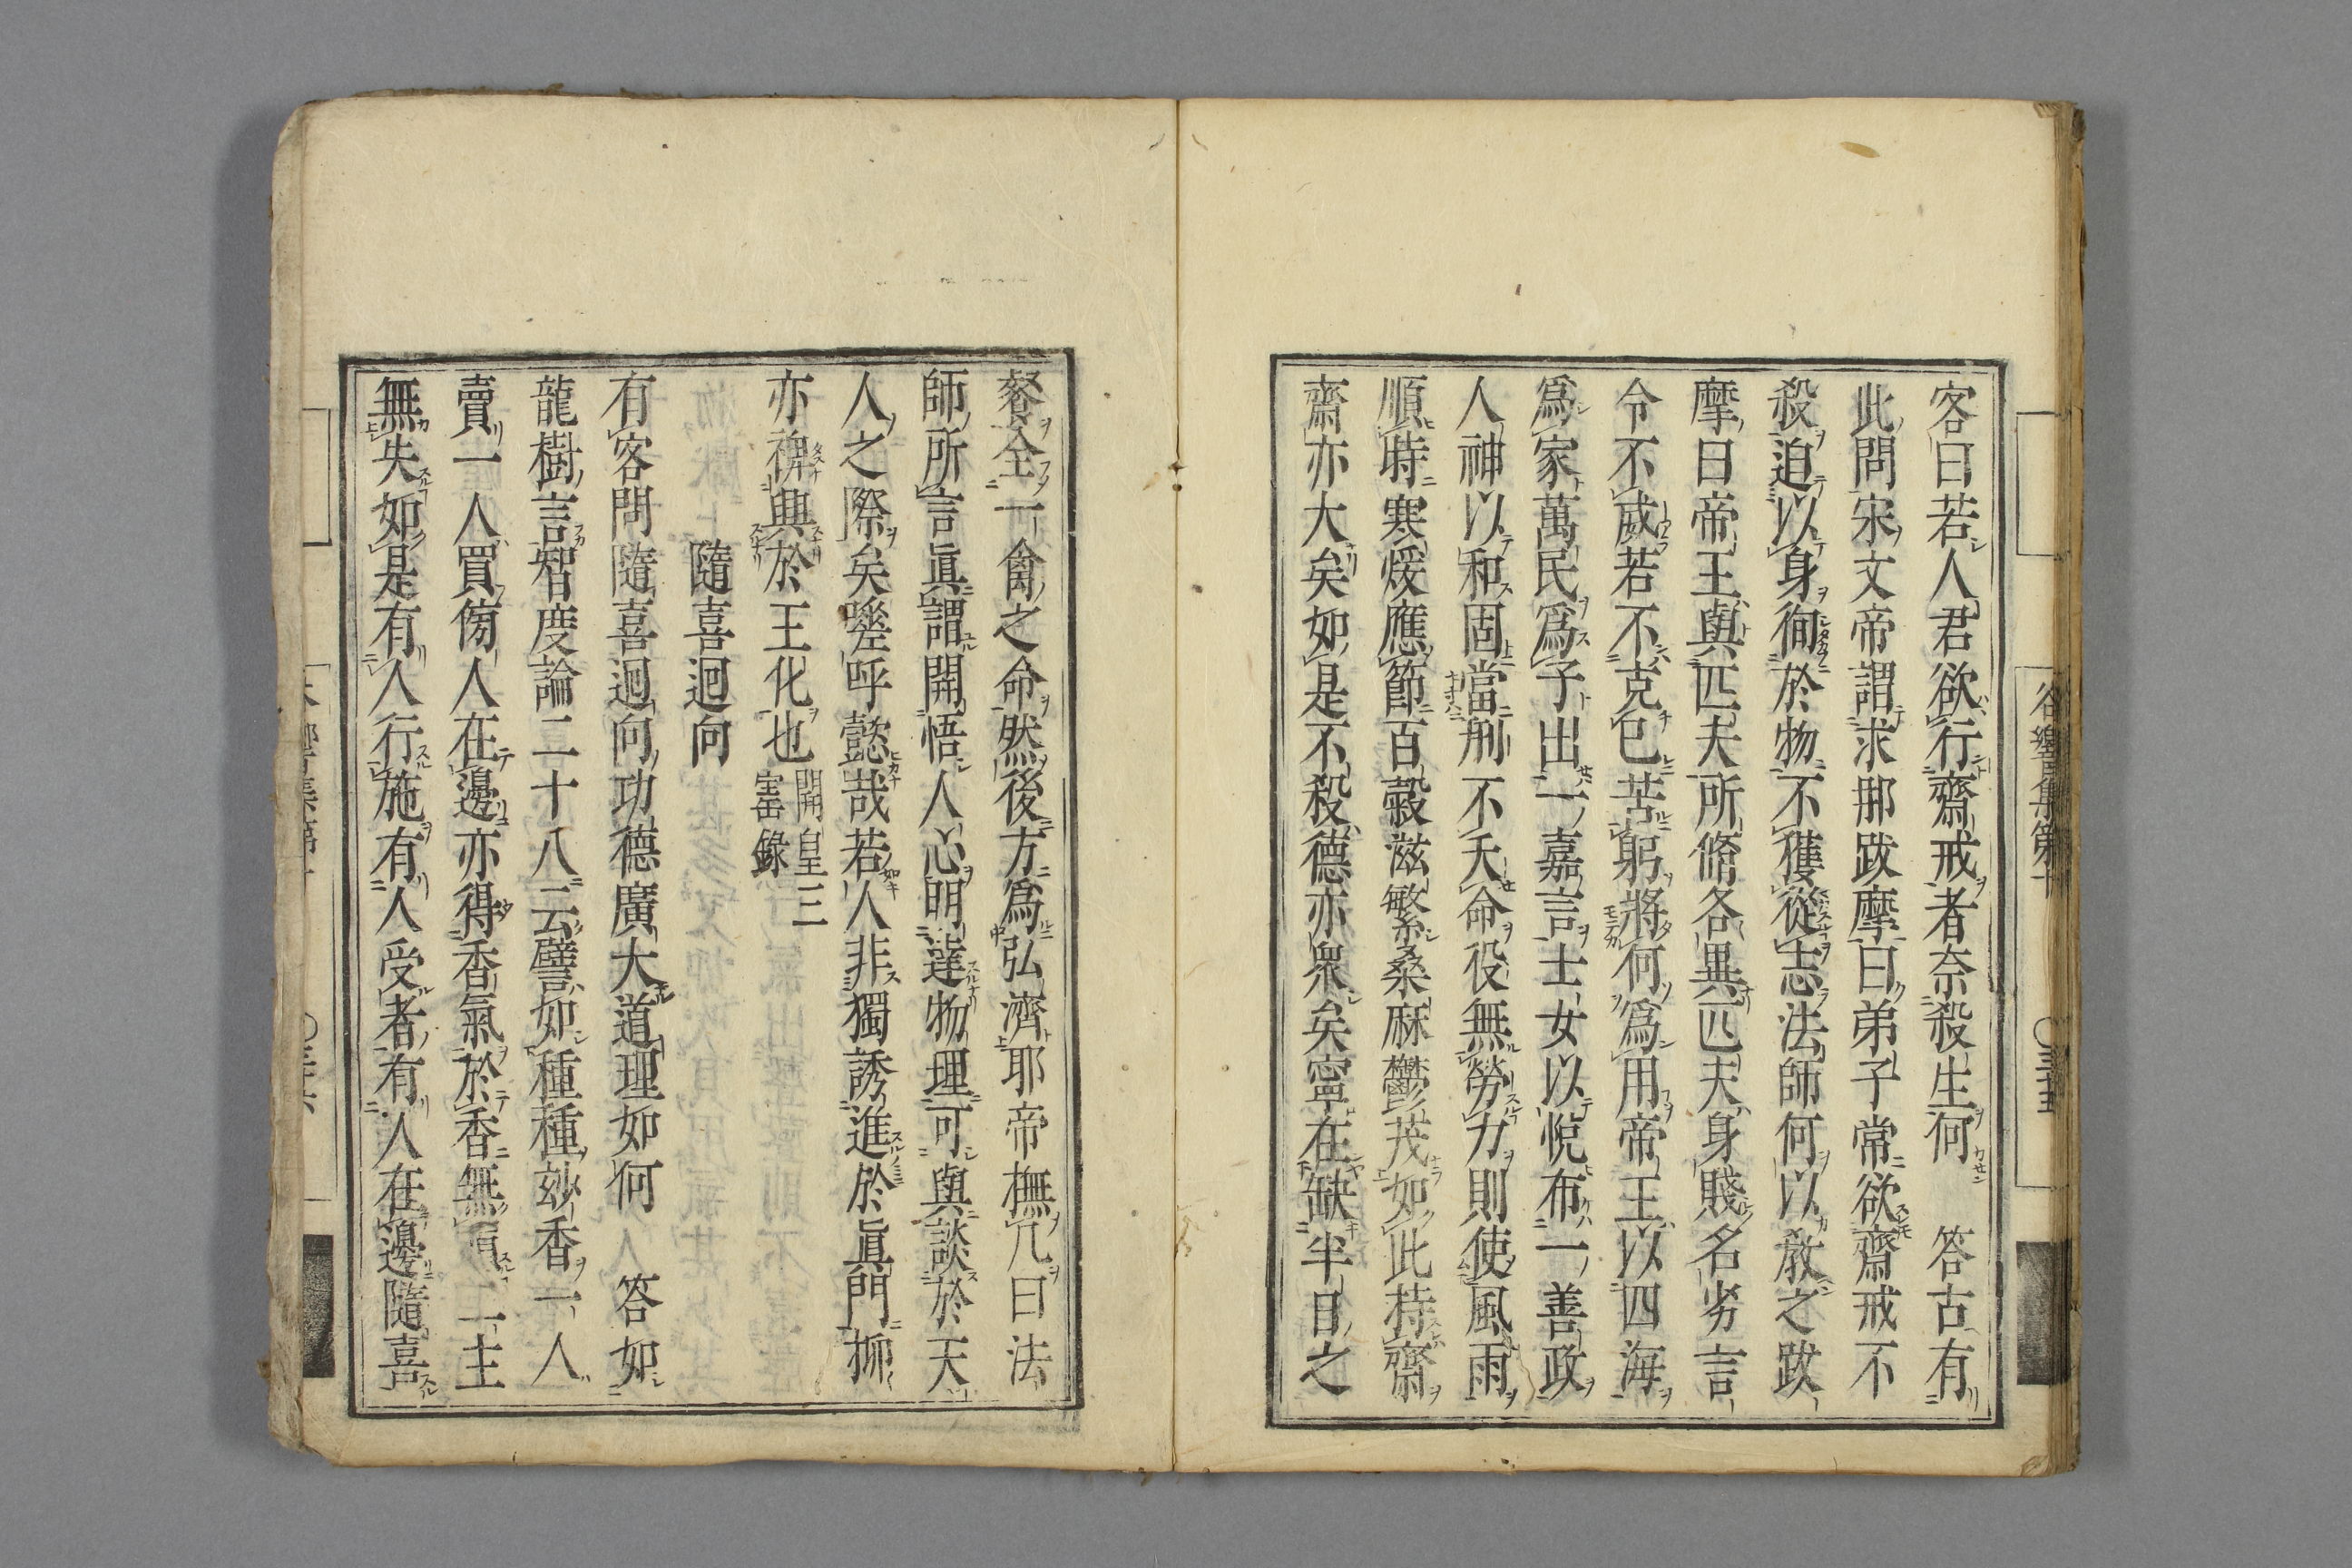 客曰若人君欲行齋戒者奈殺生何　答古有
此問宋文帝謂求那跋摩曰弟子常欲齋戒不
殺迫以身徇於物不獲從志法師何以敎之跋
摩曰帝王與匹夫所脩各異匹夫身賤名劣言
令不威若不克己苦躬將何爲用帝王以四海
爲家萬民爲子出一嘉言士女以悅布一善政
人神以和固當刑不夭命役無勞力則使風雨
順時寒煖應節百穀滋繁桑麻鬱茂如此持齋
齋亦大矣如是不殺德亦衆矣寧在缺半日之
餐全一禽之命然後方爲弘濟耶帝撫几曰法
師所言眞謂開悟人心明達物理可與談於天
人之際矣嗟呼懿哉若人非獨誘進於眞門抑
亦裨興於王化也開皇三宝録
隨喜迴向
有客問隨喜迴向功德廣大道理如何　答如
龍樹言智度論二十八云譬如種種玅香一人
賣一人買傍人在邊亦得香氣於香無損二主
無失如是有人行施有人受者有人在邊隨喜
谷響集第十
〇三十五
響集第十